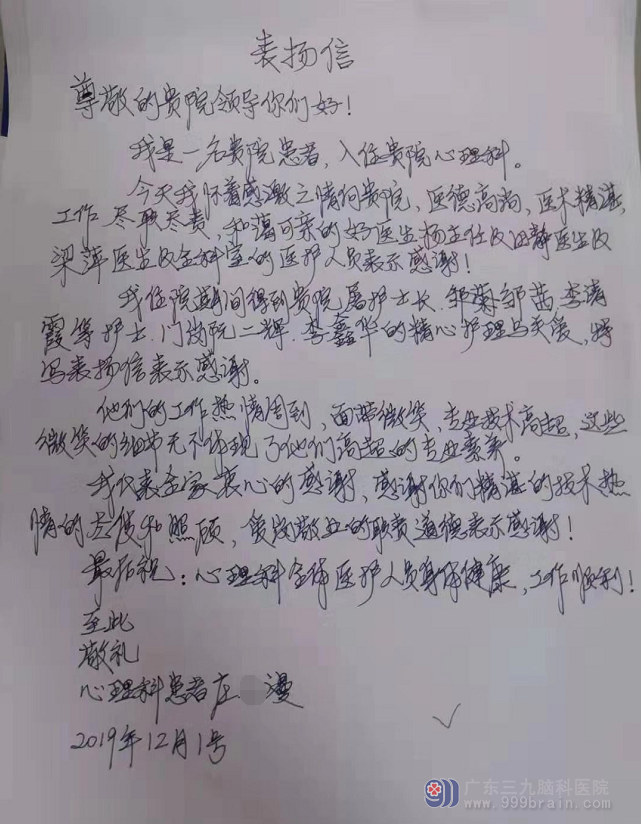 表扬信
尊敬的贵院领导你们好！
我是一名贵院患者，入住贵院心理科。
今天我怀着感激之情向贵院，医德高尚，医术精湛，
工作尽职尽责，和蔼可亲的好医生杨主任及田静医生及
梁萍医生及全科室的医护人员表示感谢！
我住院期间得到贵院屠护士长.邹菊邹茜.李清
霞等护士.门岗阮二辉.李鑫华的精心护理与关爱，特
写表扬信表示感谢。
他们的工作热情周到，面带微笑，专业技术高超，这些
微笑的细节无不体现了他们高超的专业素养。
我代表全家衷心的感谢，感谢你们精湛的技术热
情的态度和照顾，爱岗敬业的职责道德表示感谢！
最后祝：心理科全体医护人员身体健康，工作顺利！
至此
敬礼
心理科患者庄 漫
2019年12月1号
广东三九脑科医院
www.999brain.com